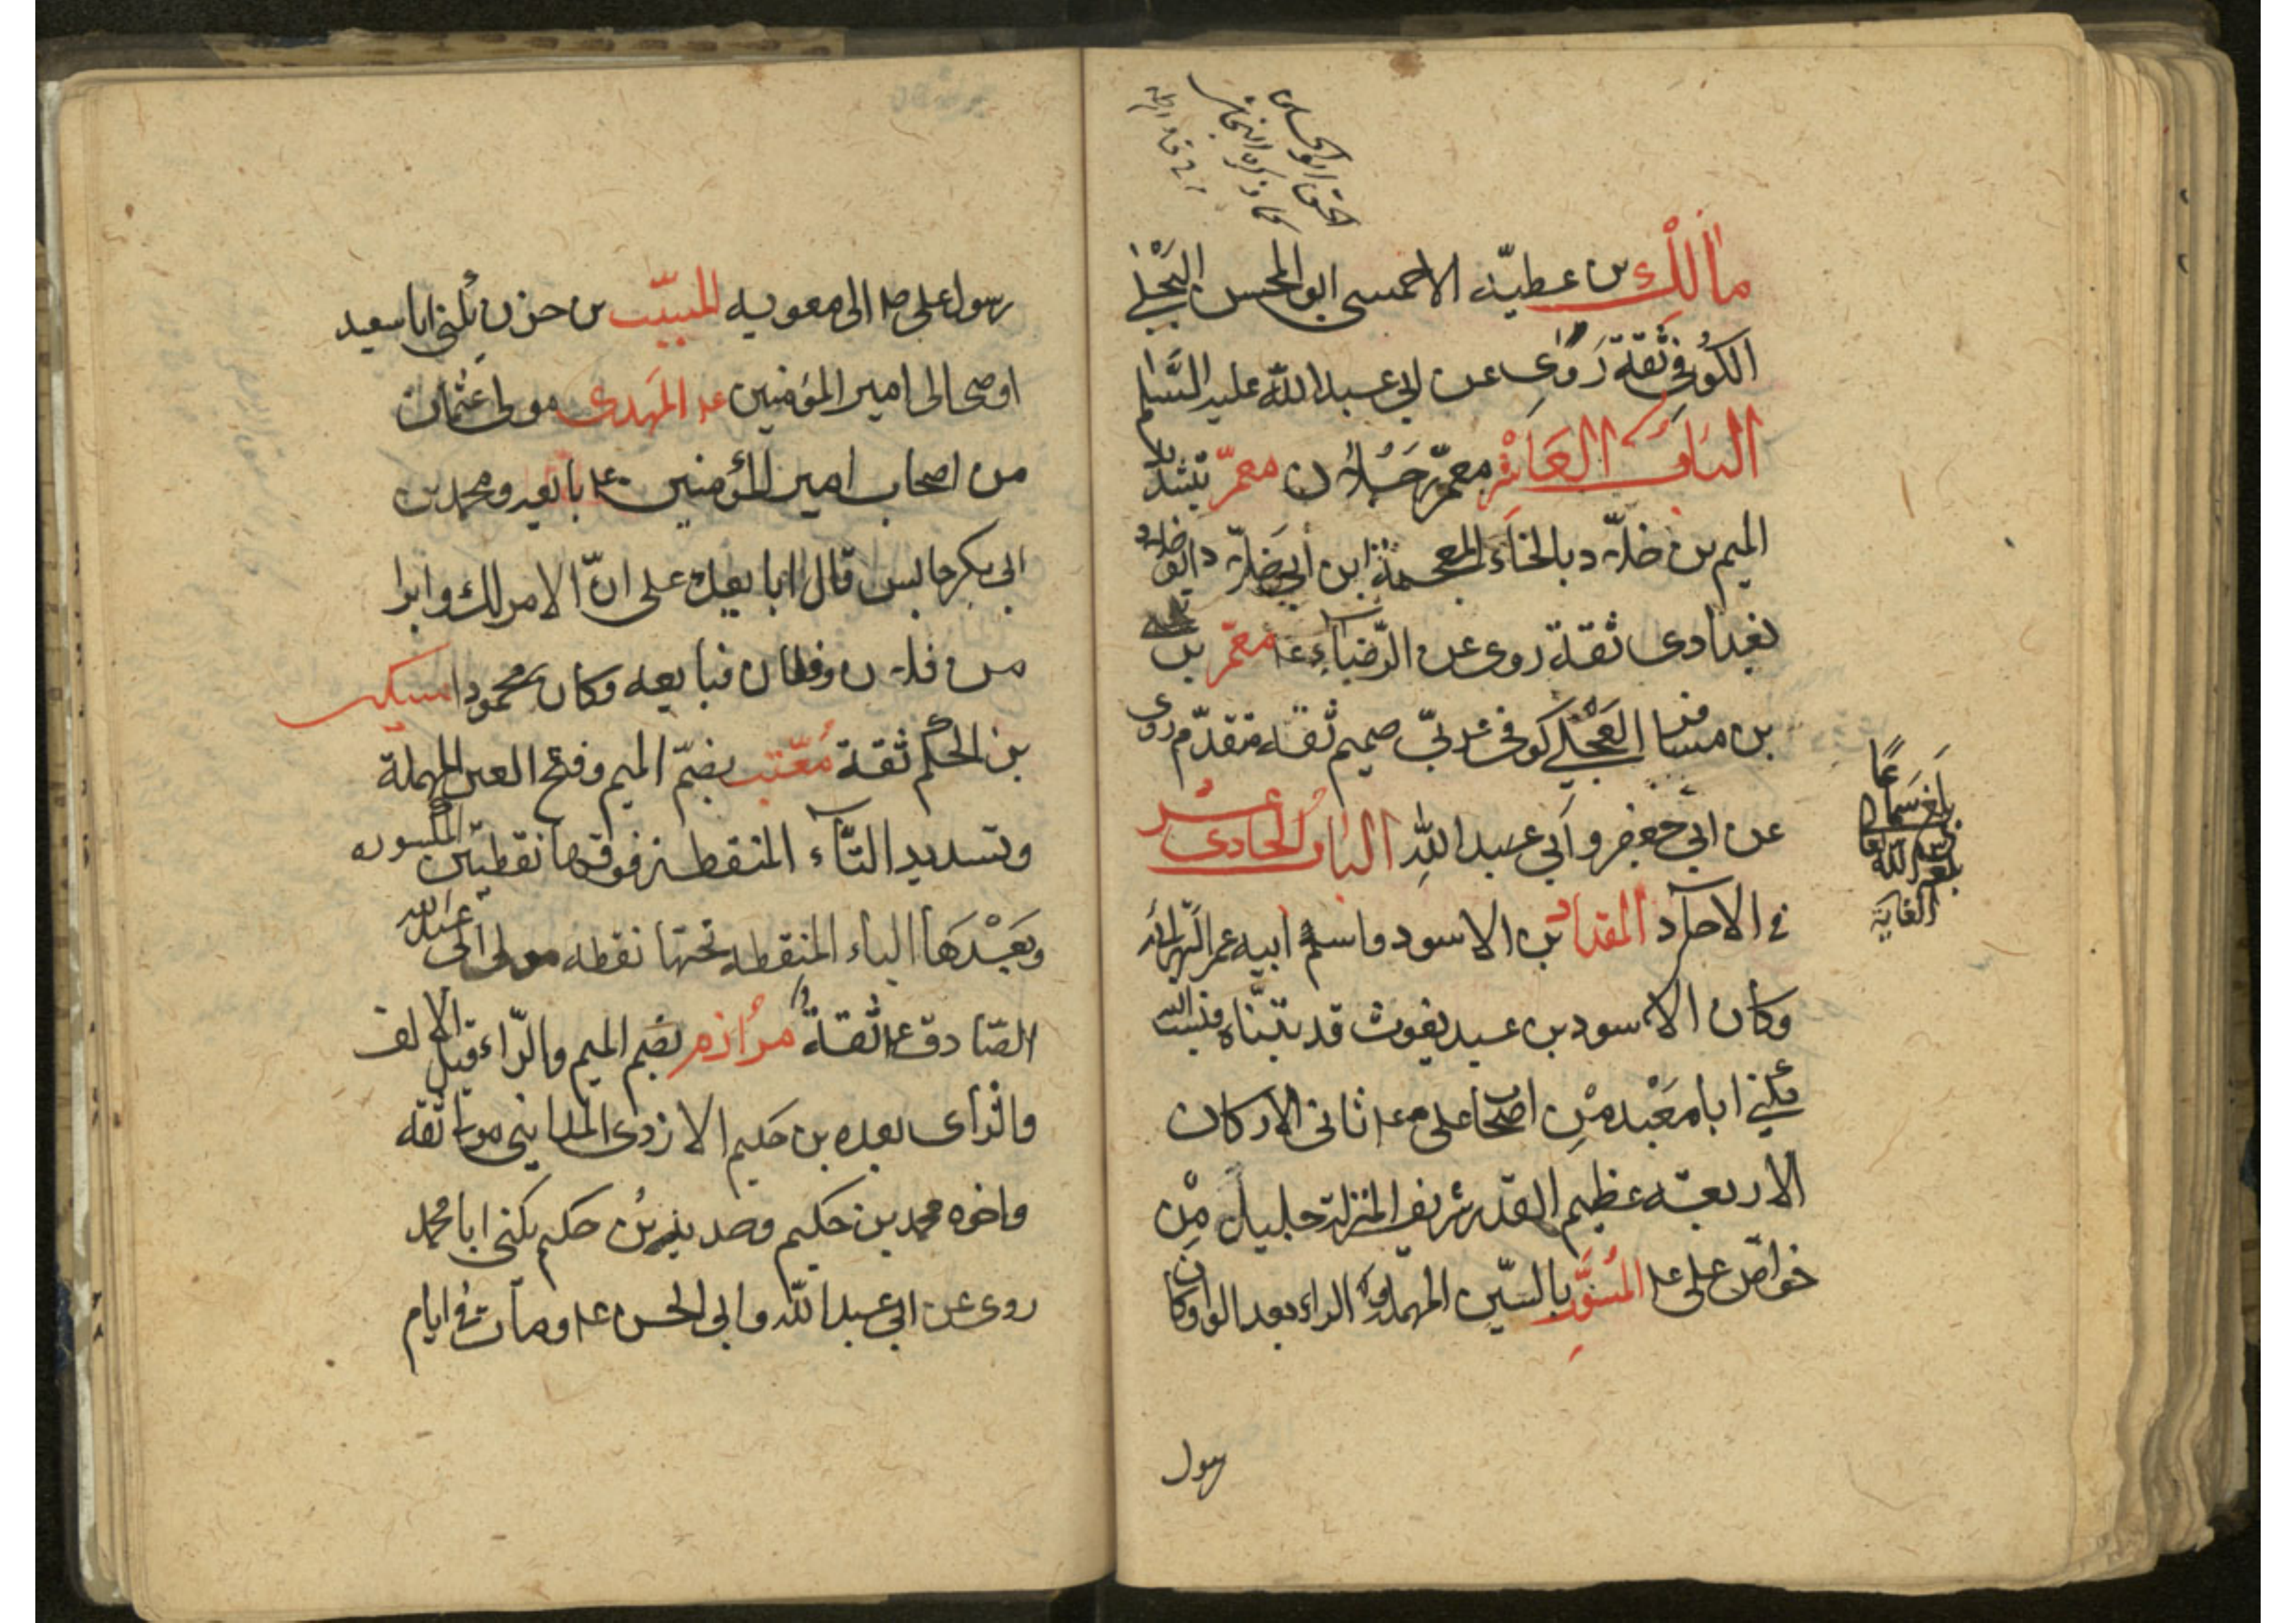 مالك بن عطيّة الاحمسى ابو الحسن البَجْلى
الكوُفى ثقة رَوى عن ابى عبد الله عليه السَّلم
البَابُ العَاشر معمّر رَجُلان معمّر بتشديد
الميم بن خلّاد بالخاء المعجمة ابن أبى خلّاد ابو خلاد
بغدادى ثقة روى عن الرّضاء ع معمّر بن يحيى
بن مسافر العجْلى كوفى عربىّ صميم ثقة متقدّم روى
عن ابى جعفر وأبى عبد اللهِ البَابُ الحَادى عشر
فى الآحاد المقداد بن الاسود واسم ابيه عمر البهرانى
وكان الاسود بن عبد يغوث قد تبنّاه فنسب اليه
يُكنى ابا مَعْبد مِنْ اصحاب على ع ثانى الاركان
الاربعة عظيم القدر شريف المنزلة جليل مِنْ
خواصّ على ع المُسَوَّر بالسّين المهملة والراء بعد الواو كان
رسول
بلغ سَماعًا
ايّده الله تعالى
الغاية
الحق ابو الحسين
كما ذكره النجاشى
رسول على ع الى معويه المسيّب بن حزن يُكنى ابا سعيد
اوصى الى امير المؤمنين ع المَهدى مولى عثمان
من اصحاب امير المؤمنين ع بايعه ومحمد بن
ابى بكر جالس قال ابايعك على انّ الامر لك وابرا
من فلان وفلان فبايعه وكان محمودا مسكين
بن الحكم ثقة مُعَتّب بضمّ الميم وفتح العين المهملة
وتشديد التّآء المنقطة فوقها نقطتين المكسوره
وبَعْدَهَا الباء المنقطه تحتها نقطه مولى ابى عبد الله
الصّادق ع ثقة مُرازم بضم الميم والرّاء قبل الالف
والزاى بعده بن حكيم الازدى المداينى مولى ثقه
واخوه محمد بن حكيم وحديد بن حكيم يكنى ابا محمد
روى عن ابى عبد الله وابى الحسن ع ومات فى ايام